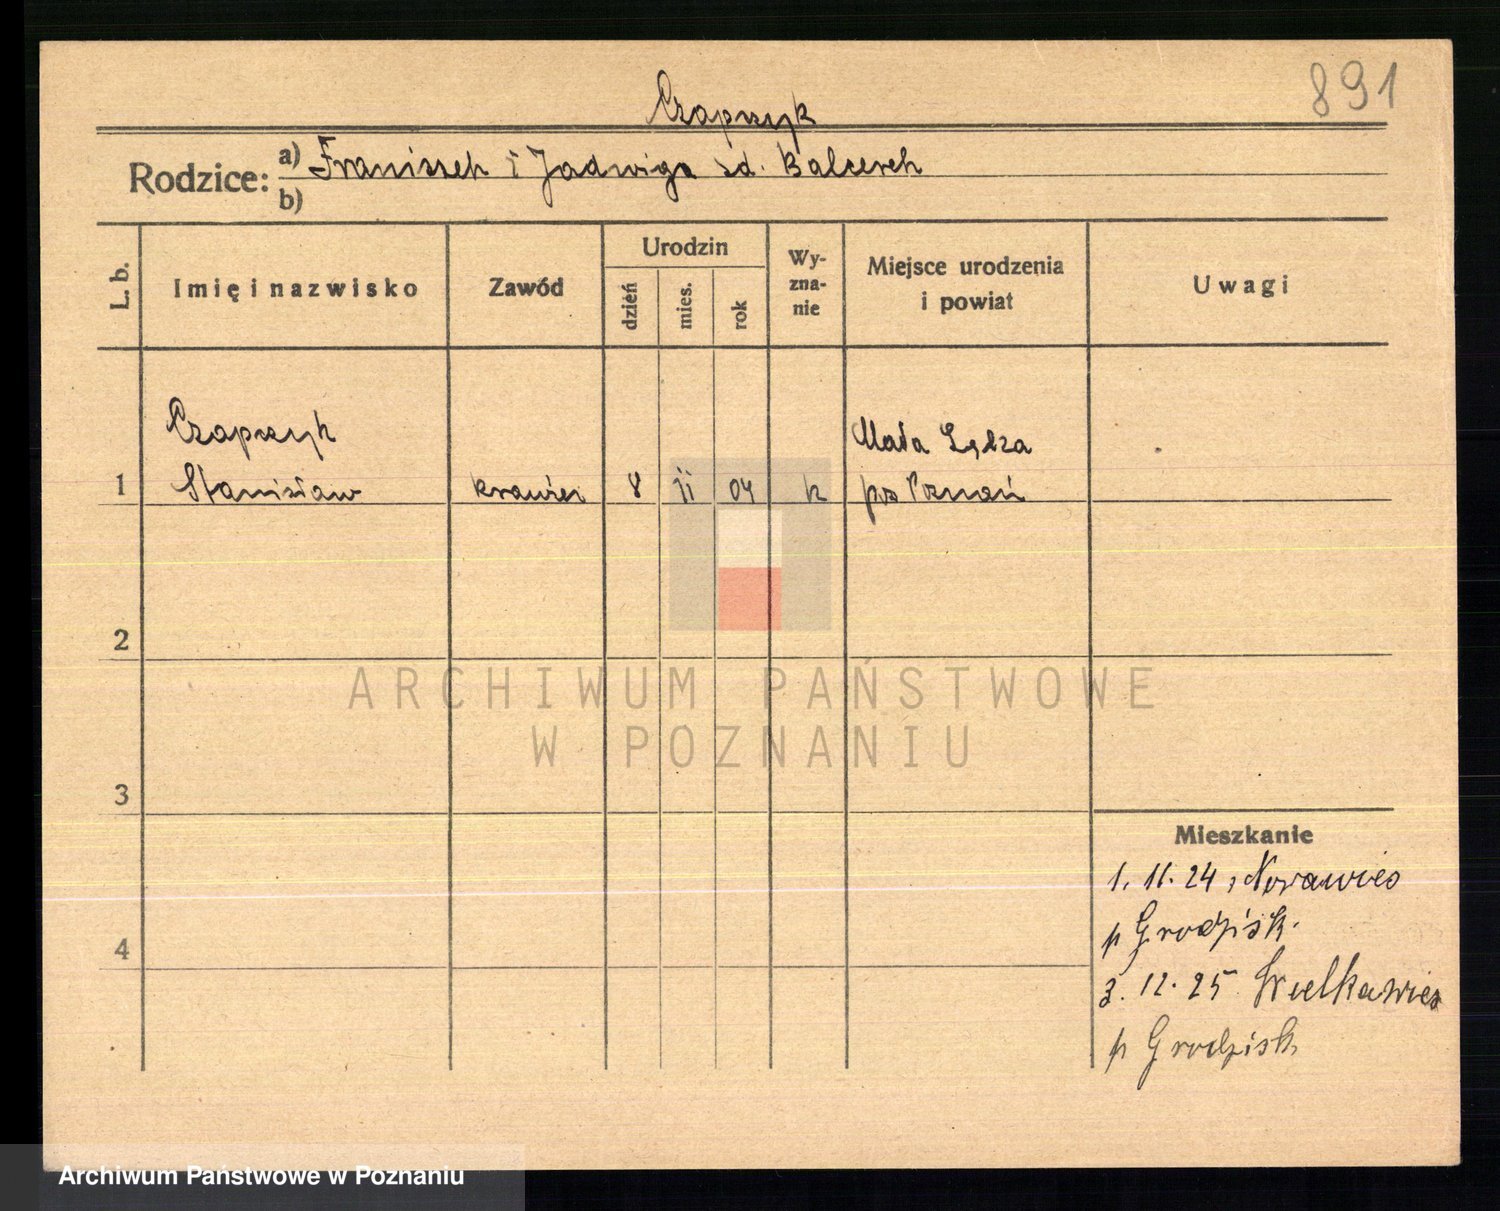 891
Czapczyk
Rodzice: a) Franiszek i Jadwiga zd. Balcerek
b)
L. b. Imię i nazwisko Zawód Urodzin dzień mies. rok Wy-zna-nie Miejsce urodzenia i powiat Uwagi
Czapczyk Mała
1 Stanisław krawiec 8 ii 04 k Poznań
2
3
4
Mieszkanie
1. 11. 24, Nowawieś
p Grodzisk.
3. 12. 25 Wielkawieś
p Grodzisk
ARCHIWUM PAŃSTWOWE
W POZNANIU
Archiwum Państwowe w Poznaniu